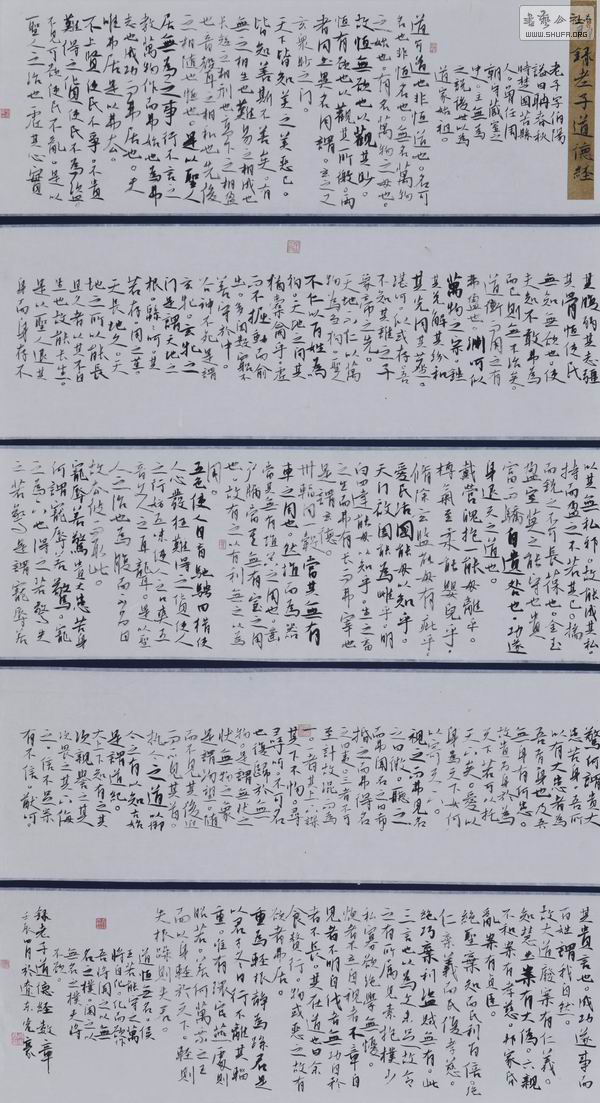 書藝公社
WWW.SHUFR.ORG
錄老子道德經
老子字伯陽
謚曰聃春秋
時楚國苦縣
人曾任周
朝守藏室之
道家始祖
道可道也非恒道也名可
名也非恒名也無名萬物
之始也有名萬物之母也
故恒無欲也以觀其眇
恒有欲也以觀其所徼兩
者同出異名同謂玄之又
玄衆眇之門
天下皆知美之為美惡已
皆知善斯不善矣有
無之相生也難易之相成也
長短之相刑也高下之相盈
也音聲之相和也先後
之相隨恒也是以聖人
居無為之事行不言之
教萬物作而弗始也為弗
志也成功而弗居也夫
唯弗居是以弗去
不上賢使民不爭不貴
難得之貨使民不為盜
不見可欲使民不亂是以
聖人之治也虛其心實
其腹弱其志彊
其骨恒使民
無知無欲也使
夫知不敢弗為
而已則無不治矣
道沖而用之有
弗盈也淵呵似
萬物之宗銼
其兌解其紛和
其光同其塵
湛呵似或存吾
不知其誰之子
象帝之先
天地不仁以萬
物為芻狗聖人
不仁以百姓為
芻狗天地之間其
猶橐籥乎虛
而不淈動而俞
出多聞數窮不
若守於中
谷神不死是謂
玄牝玄牝之
門是謂天地之
根緜呵其
若存用之不堇
天長地久天
地之所以能長
且久者以其不自
生也故能長生
是以聖人退其
身而身存不
以其無私邪故能成其私
持而盈之不若其已揣
而銳之不可長葆也金玉
盈室莫之能守也貴
富而驕自遺咎也功遂
身退天之道也
戴營魄抱一能毋離乎
摶氣至柔能嬰兒乎
脩除玄監能毋有疵乎
愛民治國能毋以知乎
天門啟闔能為雌乎明
白四達能毋以知乎生之畜
之生而弗有長而弗宰也
是謂玄德
卅輻同一轂當其無有
車之用也埏埴而為器
當其無有埴器之用也鑿
戶牖當其無有室之用
也故有之以為利無之以為
用
五色使人目盲馳騁田獵使
人心發狂難得之貨使人
之行妨五味使人之口爽五
音使人之耳聾是以聖
人之治也為腹而不為目
故去彼而取此
寵辱若驚貴大患若身
何謂寵辱若驚寵
之為下也得之若驚失
之若驚是謂寵辱若
驚何謂貴大
患若身吾所
以有大患者為
吾有身也及吾
無身有何患
故貴為身於為
天下若可以托
天下矣愛以
身為天下女何
以寄天下
視之而弗見名
之曰微聽之
而弗聞名之曰希
捪之而弗得名
之曰夷三者不可
至計故混而為
一一者其上不謬
其下不忽尋
尋呵不可名
也復歸於無
物是謂無狀之
狀無物之象
是謂沕望隨
而不見其後迎
而不見其首
執今之道以御
今之有以知古始
是謂道紀
大上下知有之其
次親譽之其
次畏之其下侮
之信不足案
有不信猷呵
其貴言也成功遂事而
百姓謂我自然
故大道廢案有仁義
知慧出案有大偽六親
不和案有孝慈邦家昏
亂案有貞臣
絕聖棄知而民利百倍絕
仁棄義而民復孝慈
絕巧棄利盜賊無有此
三言也以為文未足故令
之有所屬見素抱樸少
私寡欲絕學無憂
炊者不立自視者不章自
見者不明自伐者無功自矜
者不長其在道也曰餘
食贅行物或惡之故有
欲者弗居
重為輕根靜為躁君是
以君子冬日行不離其輜
重唯有環官燕處則
昭若若何萬乘之王
而以身輕於天下輕則
失根躁則失君
道恒無名侯
王若能守之萬物
將自化化而欲作
吾將闐之以無
名之樸闐之以
無名之樸夫將
不欲
錄老子道德經數章
壬辰四月於遼東